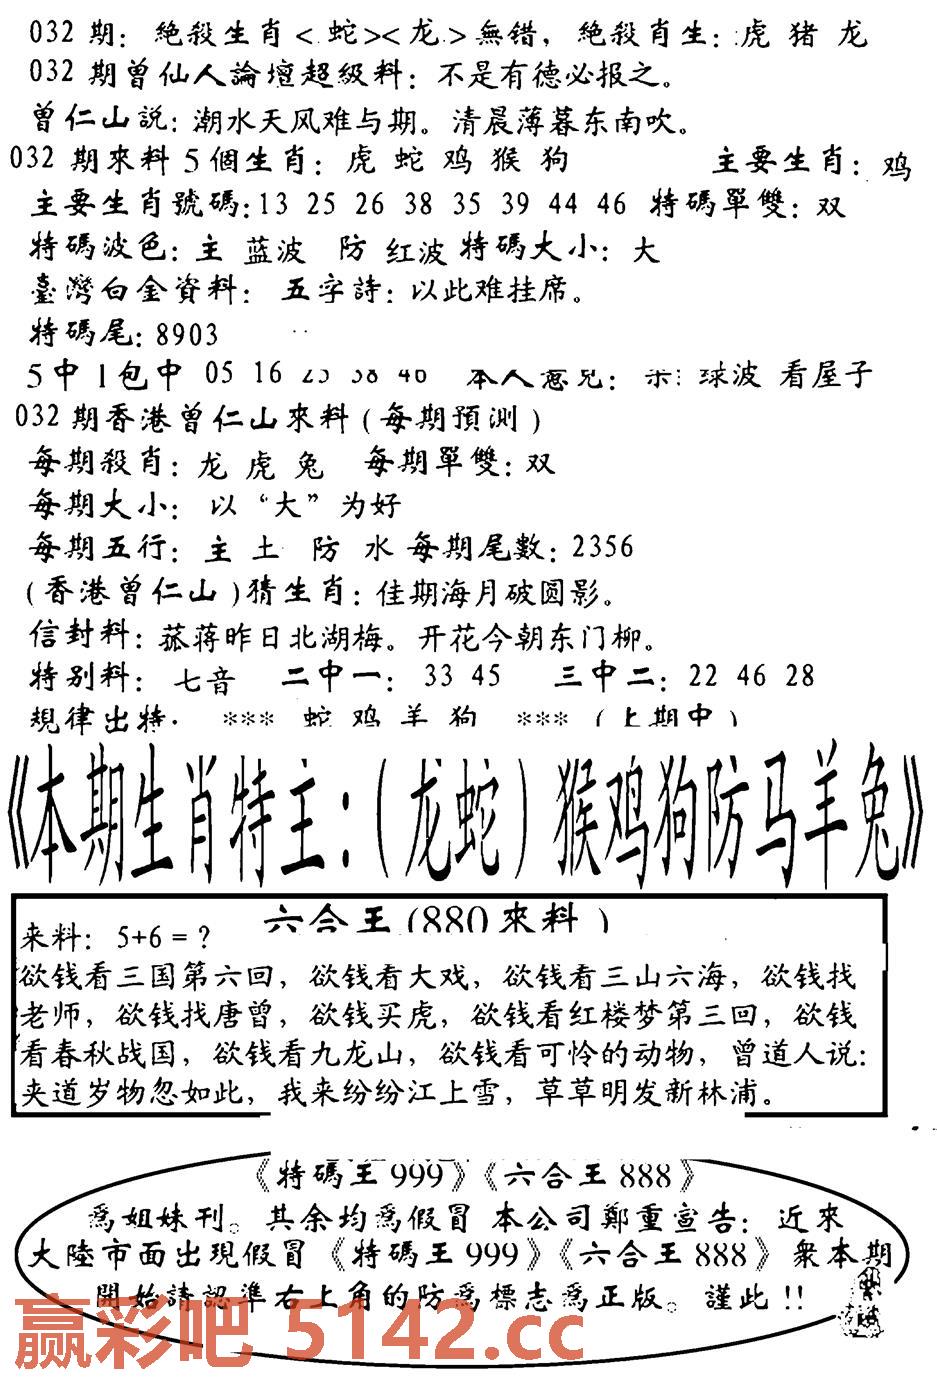 032 期: 絶殺生肖<蛇><龙>無错, 絶殺肖生: 虎 猪 龙
032 期曾仙人論壇超級料: 不是有德必报之。
曾仁山説: 潮水天风难与期。清晨薄暮东南吹。
032 期來料 5 個生肖: 虎 蛇 鸡 猴 狗 主要生肖: 鸡
主要生肖號碼: 13 25 26 38 35 39 44 46 特碼單雙: 双
特碼波色: 主 蓝波 防 红波 特碼大小: 大
臺灣白金資料: 五字詩: 以此难挂席。
特碼尾: 8903
5 中 1 包中 05 16 25 38 46 本人意見: 球波 看屋子
032 期香港曾仁山來料(每期預測)
每期殺肖: 龙 虎 兔 每期單雙: 双
每期大小: 以“大”为好
每期五行: 主 土 防 水 每期尾數: 2356
(香港曾仁山)猜生肖: 佳期海月破圆影。
信封料: 菰蒋昨日北湖梅。开花今朝东门柳。
特别料: 七音 二中一: 33 45 三中二: 22 46 28
規律出特. *** 蛇 鸡 羊 狗 *** (上期中)
《本期生肖特主:(龙蛇)猴鸡狗防马羊兔》
六合王(880來料)
来料: 5+6=?
欲钱看三国第六回, 欲钱看大戏, 欲钱看三山六海, 欲钱找
老师, 欲钱找唐曾, 欲钱买虎, 欲钱看红楼梦第三回, 欲钱
看春秋战国, 欲钱看九龙山, 欲钱看可怜的动物, 曾道人说:
夹道岁物忽如此, 我来纷纷江上雪, 草草明发新林浦。
《特碼王999》《六合王888》
爲姐妹刊。其余均爲假冒 本公司鄭重宣告: 近來
大陸市面出現假冒《特碼王999》《六合王888》衆本期
開始請認準右上角的防爲標志爲正版。謹此!!
赢彩吧 5142.cc